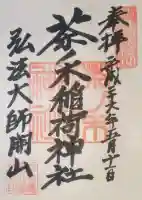 奉拝 平成二十六年五月十一日
茶ノ木稲荷神社
弘法大師開山